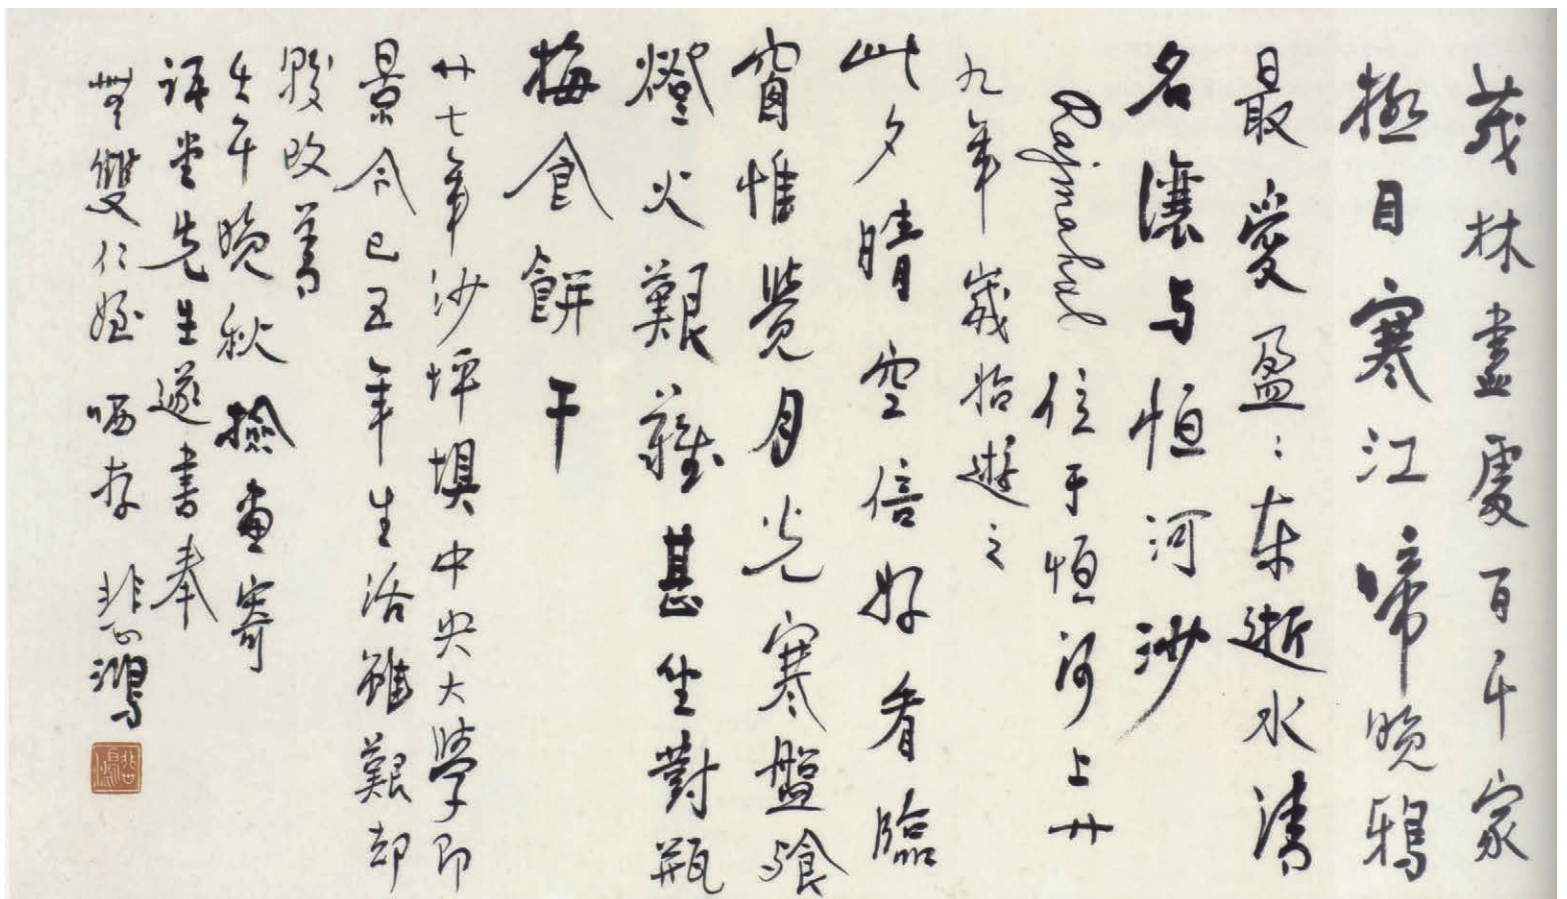 茂林盡處百千家
極目寒江啼晚鴉
最愛盈:東逝水清
名讓与恒河沙
Rajmahal 位于恒河上廿
九年歲始遊之
此夕晴空倍好看臨
窗惟覺月光寒盤飱
燈火艱難甚坐對瓶
梅食餅干
廿七年沙坪垻中央大學即
景今已五年生活雖艱却
較改善
壬午晚秋撿畫寄
堂先生遂書奉
無雙仁姪哂存 悲鴻
悲鴻